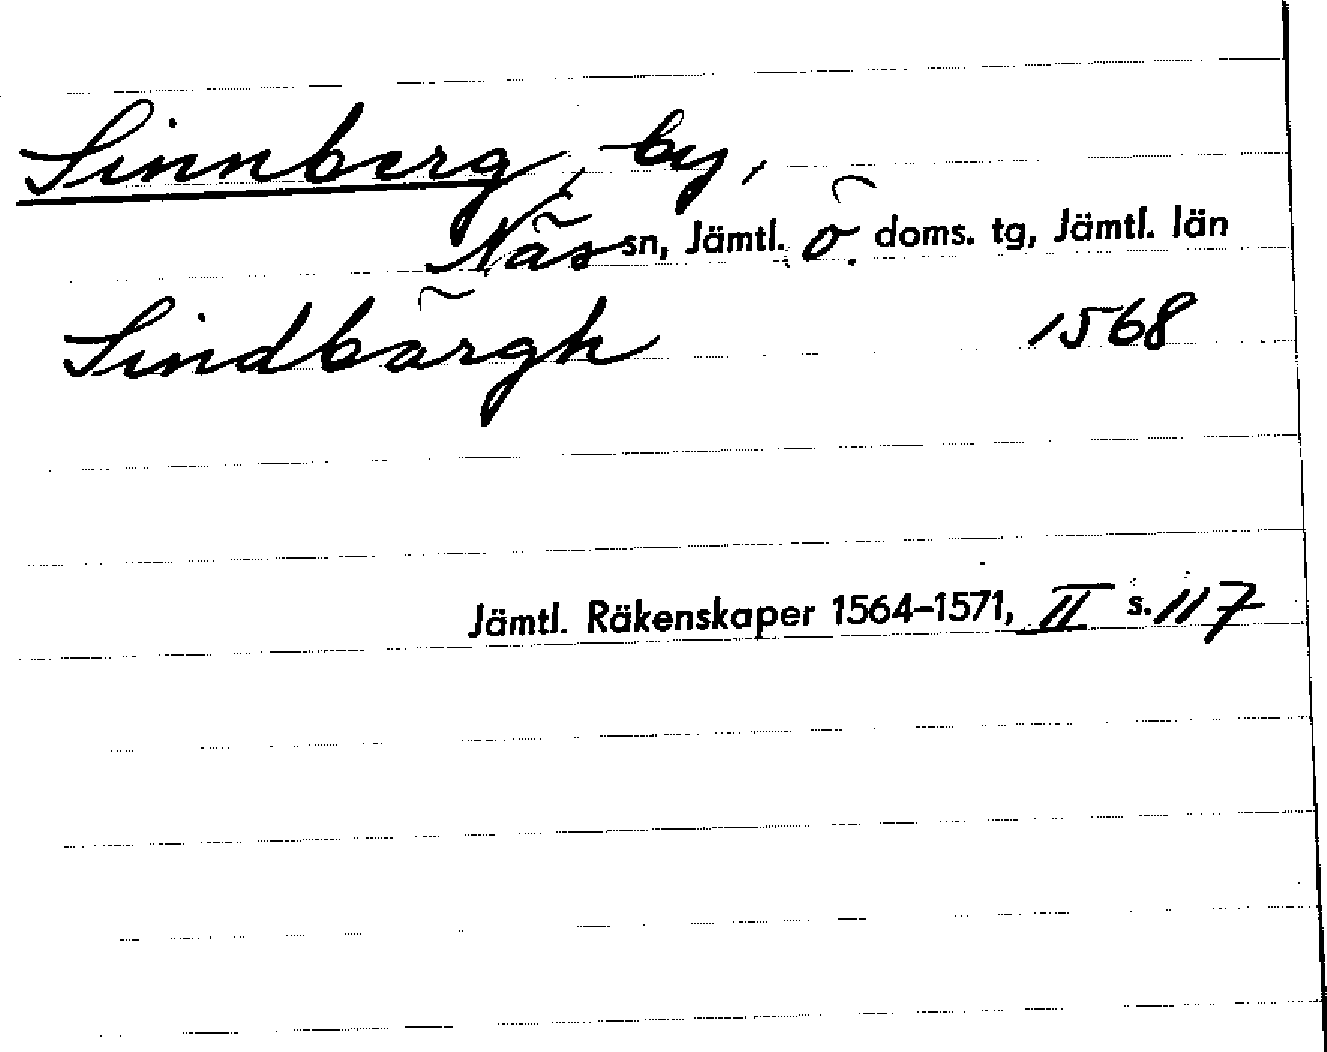 Sinnberg, by,
Näs sn, Jämtl. ö. doms. tg, Jämtl. län
Sindbärgh 1568
Jämtl. Räkenskaper 1564-1571, II s. 117